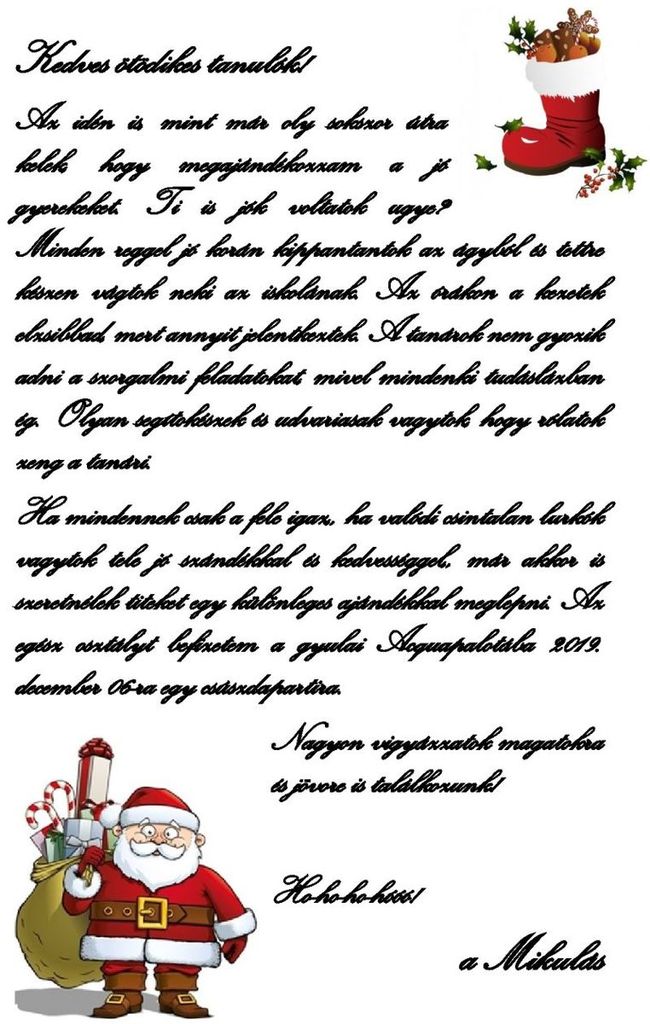 Kedves ötödikes tanulók!
Az idén is, mint már oly sokszor útra
kelek, hogy megajándékozzam a jó
gyerekeket. Ti is jók voltatok ugye?
Minden reggel jó korán kippantantok az ágyból és tettre
készen vágtok neki az iskolának. Az órákon a kezetek
elzsibbad, mert annyit jelentkeztek. A tanárok nem gyozik
adni a szorgalmi feladatokat, mivel mindenki tudáslázban
ég. Olyan segítokészek és udvariasak vagytok, hogy rólatok
zeng a tanári.
Ha mindennek csak a fele igaz, ha valódi csintalan lurkók
vagytok tele jó szándékkal és kedvességgel, már akkor is
szeretnélek titeket egy különleges ajándékkal meglepni. Az
egész osztályt befizetem a gyulai Acquapalotába 2019.
december 06-ra egy csúszdapartira.
Nagyon vigyázzatok magatokra
és jövore is találkozunk!
Ho-ho-ho-hóóó!
a Mikulás